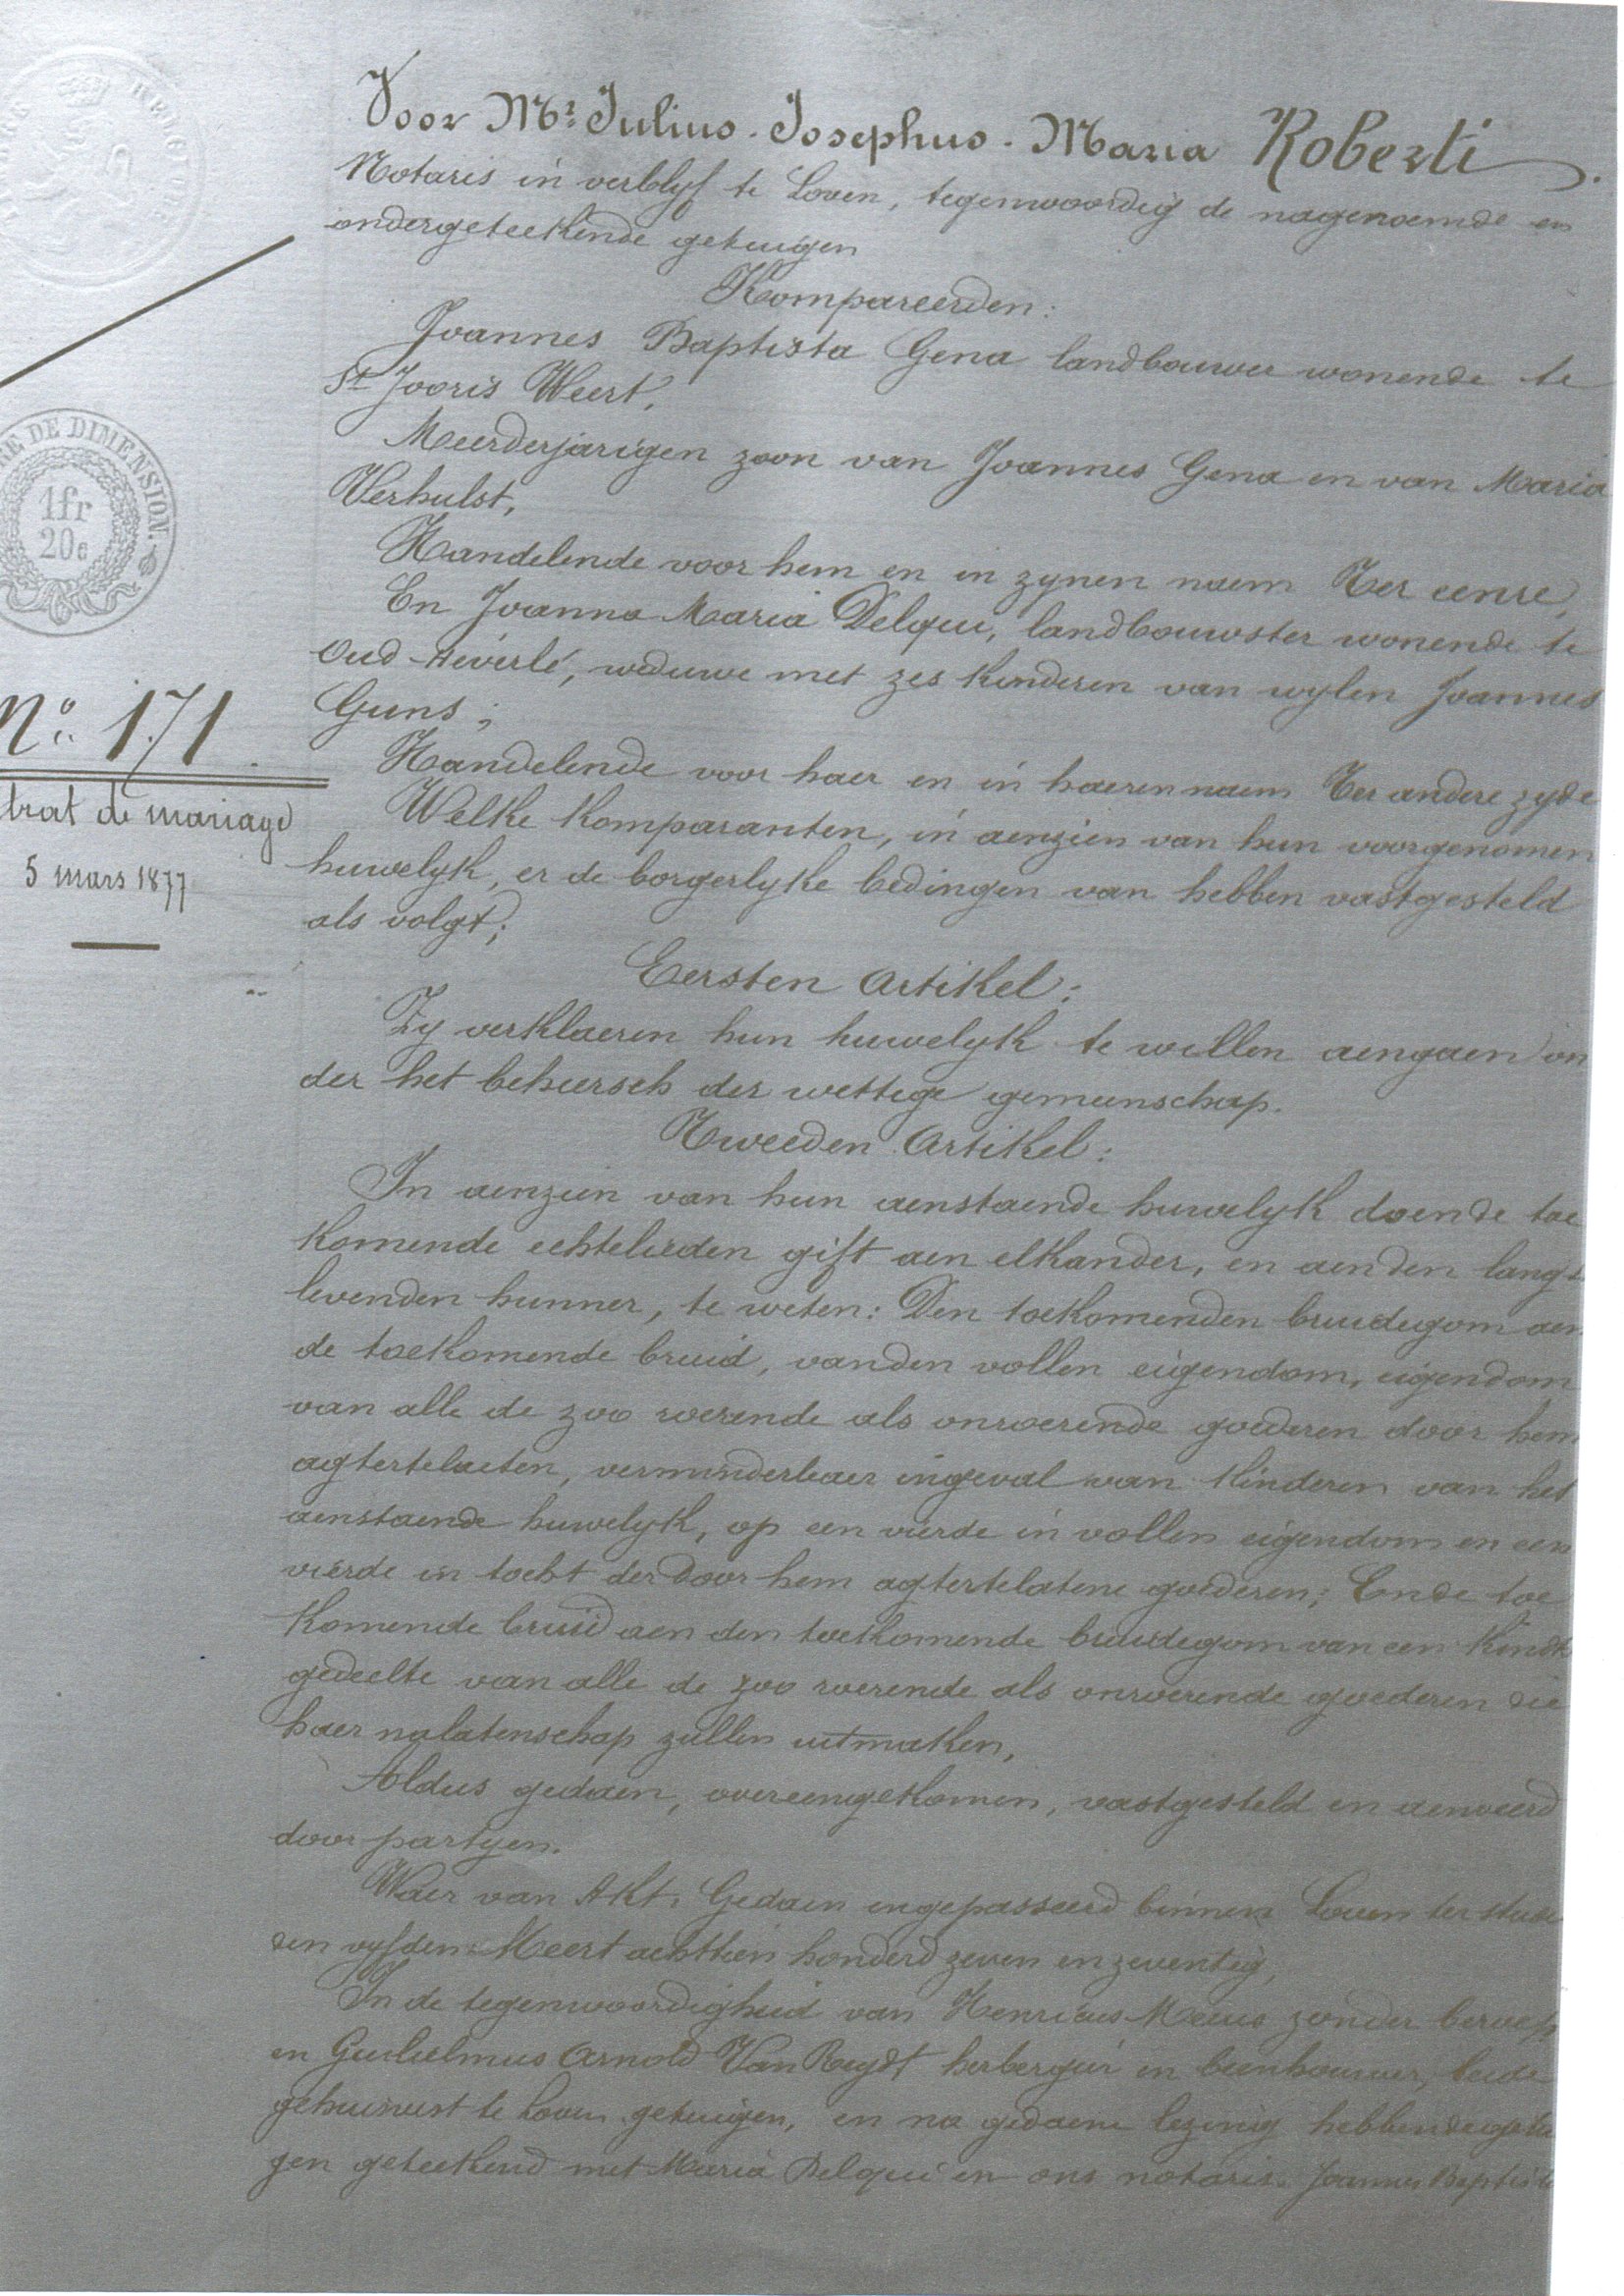 Voor Mr Julius-Josephus-Maria Roberti
Notaris in verblyf te Loven, tegenwoordig de nagenoemde en
ondergeteekende getuigen
Kompareerden:
Joannes Baptista Gena landbouwer wonende te
St Jooris Weert,
Meerderjarigen zoon van Joannes Gena en van Maria
Verhulst,
Handelende voor hem en in zynen naem Ter eenre,
En Joanna Maria Delqui, landbouwster wonende te
Oud-Heverlé, weduwe met zes kinderen van wylen Joannes
Guns;
Handelende voor haer en in haeren naem Ter andere zyde
Welke komparanten, in aenzien van hun voorgenomen
huwelyk, er de borgerlyke bedingen van hebben vastgesteld
als volgt;
Eersten Artikel:
Zy verklaeren hun huwelyk te willen aengaen on
der het beheersch der wettige gemeenschap.
Tweeden Artikel:
In aenzien van hun aenstaende huwelyk doen de toe
komende echtelieden gift aen elkander, en aen den langst
levenden hunner, te weten: Den toekomenden bruidegom aen
de toekomende bruid, van den vollen eigendom, eigendom
van alle de zoo roerende als onroerende goederen door hem
agtertelaeten, verminderbaer ingeval van kinderen van het
aenstaende huwelyk, op een vierde in vollen eigendom en een
vierde in tocht der door hem agtertelatene goederen; En de toe
komende bruid aen den toekomende bruidegom van een kinds
gedeelte van alle de zoo roerende als onroerende goederen die
haer nalatenschap zullen uitmaken,
Aldus gedaen, overeengekomen, vastgesteld en aenveerd
door partyen.
Waer van Akt. Gedaen en gepasseerd binnen Loven ter stude
den vyfden Meert achttien honderd zeven en zeventig,
In de tegenwoordigheid van Henricus Meeus zonder beroep
en Gulielmus Arnold Van Reydt herbergier en beenhouwer, beide
gehuisvest te Loven getuigen, en na gedaene lezing hebben de getui
gen geteekend met Maria Delqui en ons notaris. Joannes Baptista
RE DE DIMENSION.
1fr
20c
No. 171
trat de mariage
5 mars 1877